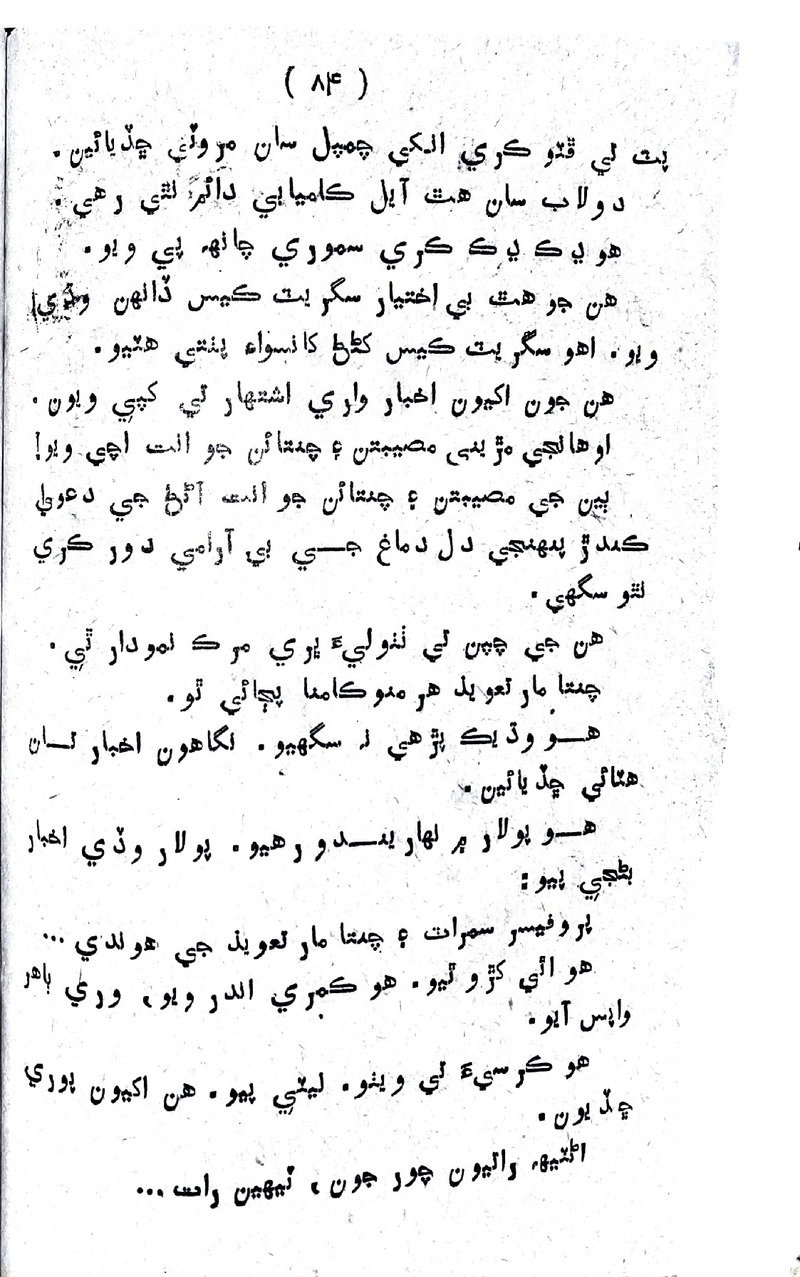 ( ۸۴ )
پٽ تي ڦٽو ڪري انکي چمپل سان مروٽي ڇڏيائين.
دولاب سان هٿ آيل ڪاميابي دائم نٿي رهي.
هو ڍڪ ڍڪ ڪري سموري چانهه پي ويو.
هن جو هٿ بي اختيار سگريٽ ڪيس ڏانهن وڌي
ويو. اهو سگريٽ ڪيس کڻڻ کانسواءِ پنتي هٽيو.
هن جون اکيون اخبار واري اشتهار تي کپي ويون.
اوهانجي مڙيني مصيبتن ۽ چنتائن جو انت اچي ويو!
ٻين جي مصيبتن ۽ چنتائن جو انت آڻڻ جي دعويٰ
ڪندڙ پنهنجي دل دماغ جـــي بي آرامي دور ڪري
نٿو سگهي.
هن جي چپن تي ٺٺوليءَ ڀري مرڪ نمودار ٿي.
چنتا مار تعويذ هر منوڪامنا پڄائي ٿو.
هـــو وڌيڪ پڙهي نہ سگهيو. نگاهون اخبار تـــان
هٽائي ڇڏيائين.
هـــو پولار ۾ نهاريندو رهيو. پولار وڏي اخبار
بڻجي پيو:
پروفيسر سمراٽ ۽ چنتا مار تعويذ جي هوندي...
هو اٿي کڙو ٿيو. هو ڪمري اندر ويو، وري ٻاهر
واپس آيو.
هو ڪرسيءَ تي ويٺو. ليٽي پيو. هن اکيون پوري
ڇڏيون.
اڻٽيهه راتيون چور جون، ٽيهين رات...